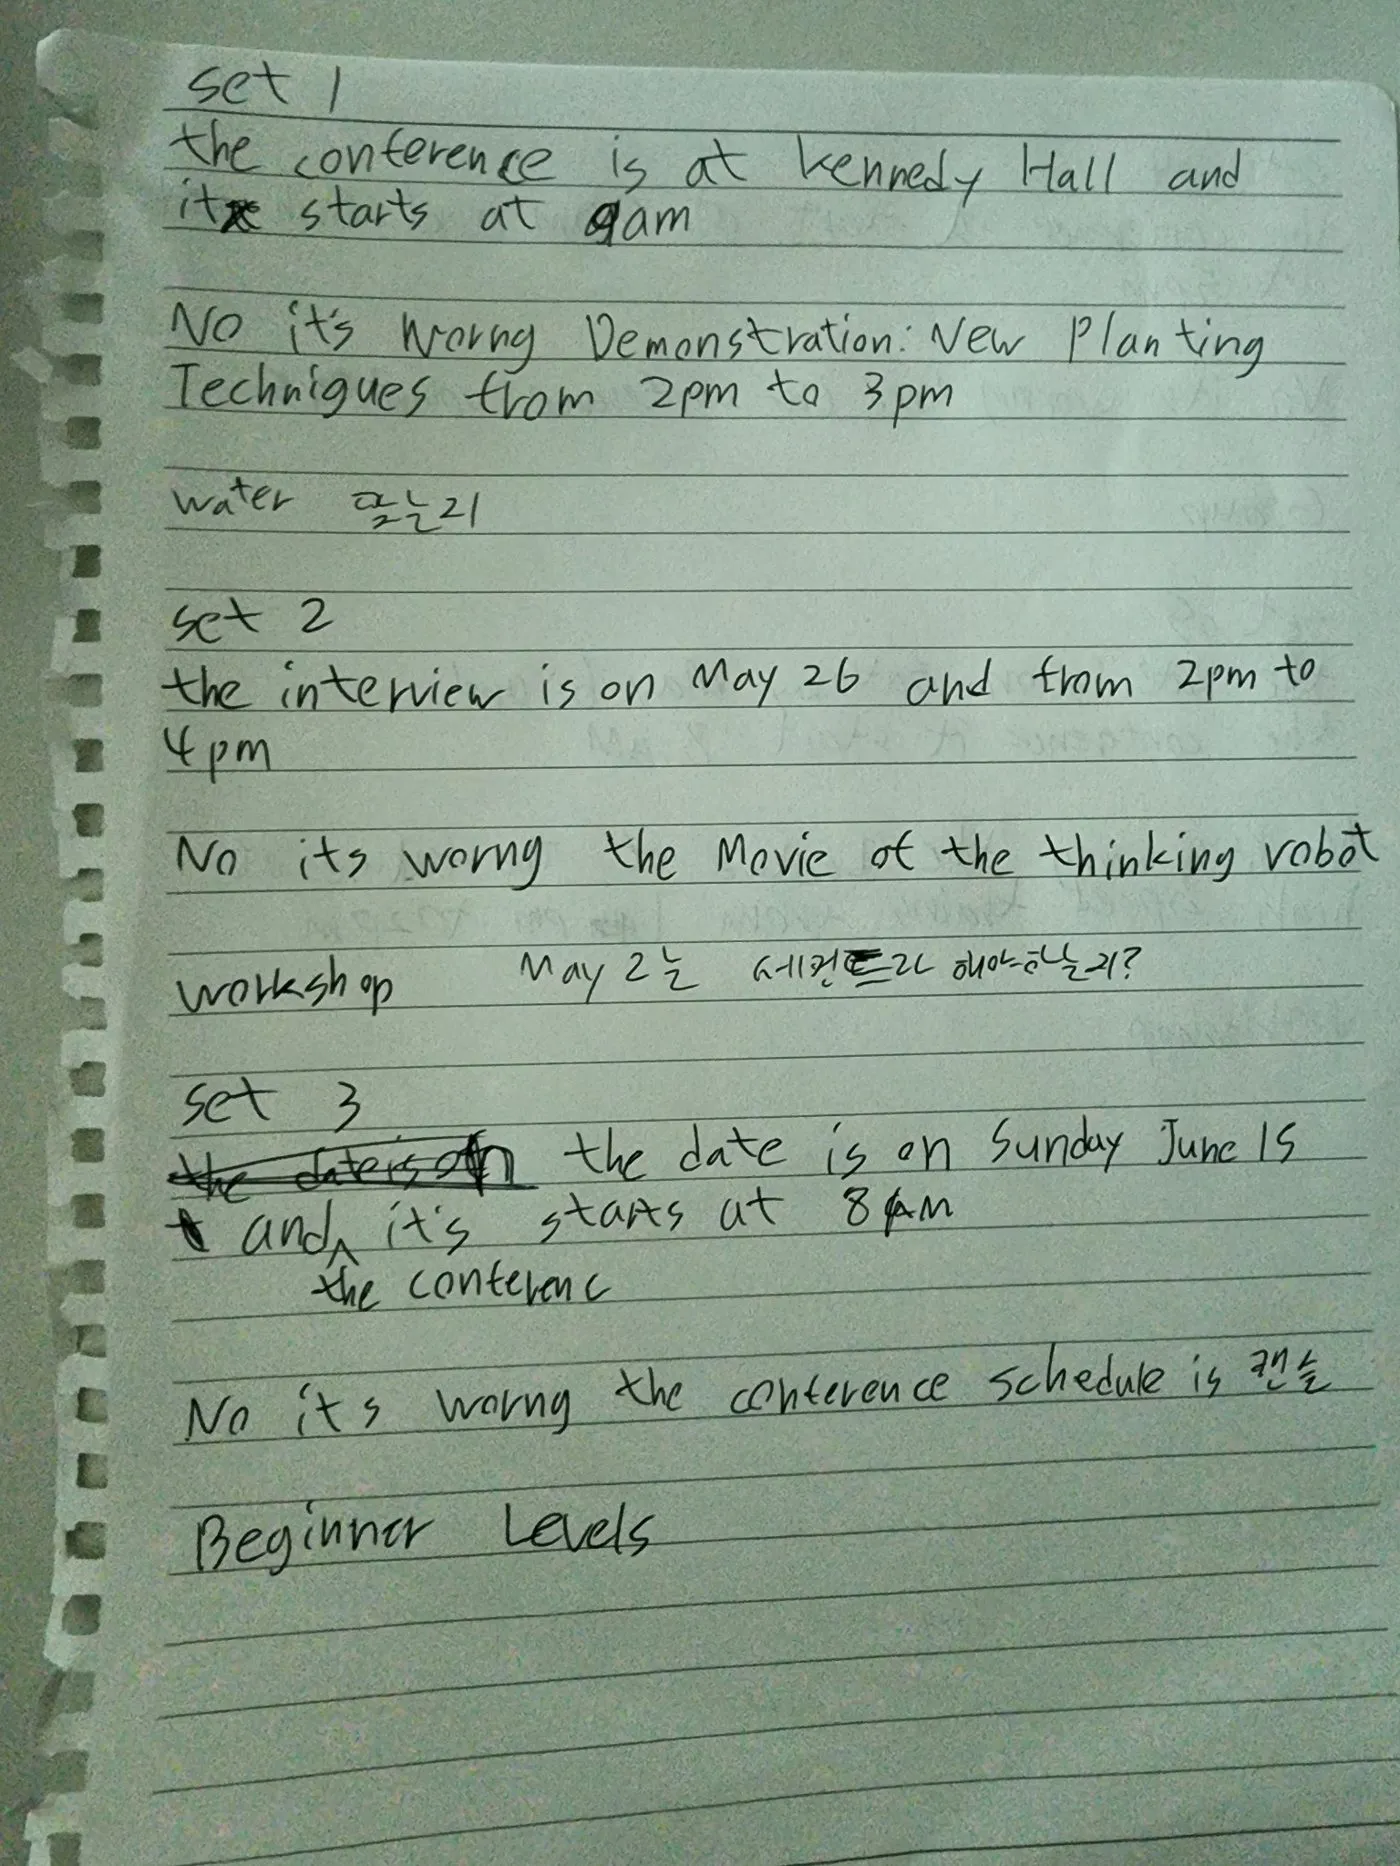 set 1
the conference is at kennedy Hall and
it starts at 9am
No it's worng Demonstration: New Planting
Techniques from 2pm to 3pm
water 맞는지
set 2
the interview is on May 26 and from 2pm to
4pm
No its worng the Movie of the thinking robot
workshop May 2는 세컨드라 해야하는지?
set 3
the date is on the date is on Sunday June 15
and it's starts at 8AM
the conferenc
No it's worng the conference schedule is 캔슬
Beginner Levels